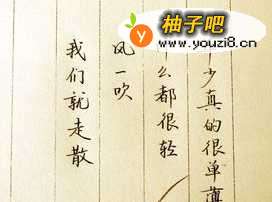 柚子吧
www.youzi8.cn
少真的很单薄
么都很轻
风一吹
我们就走散